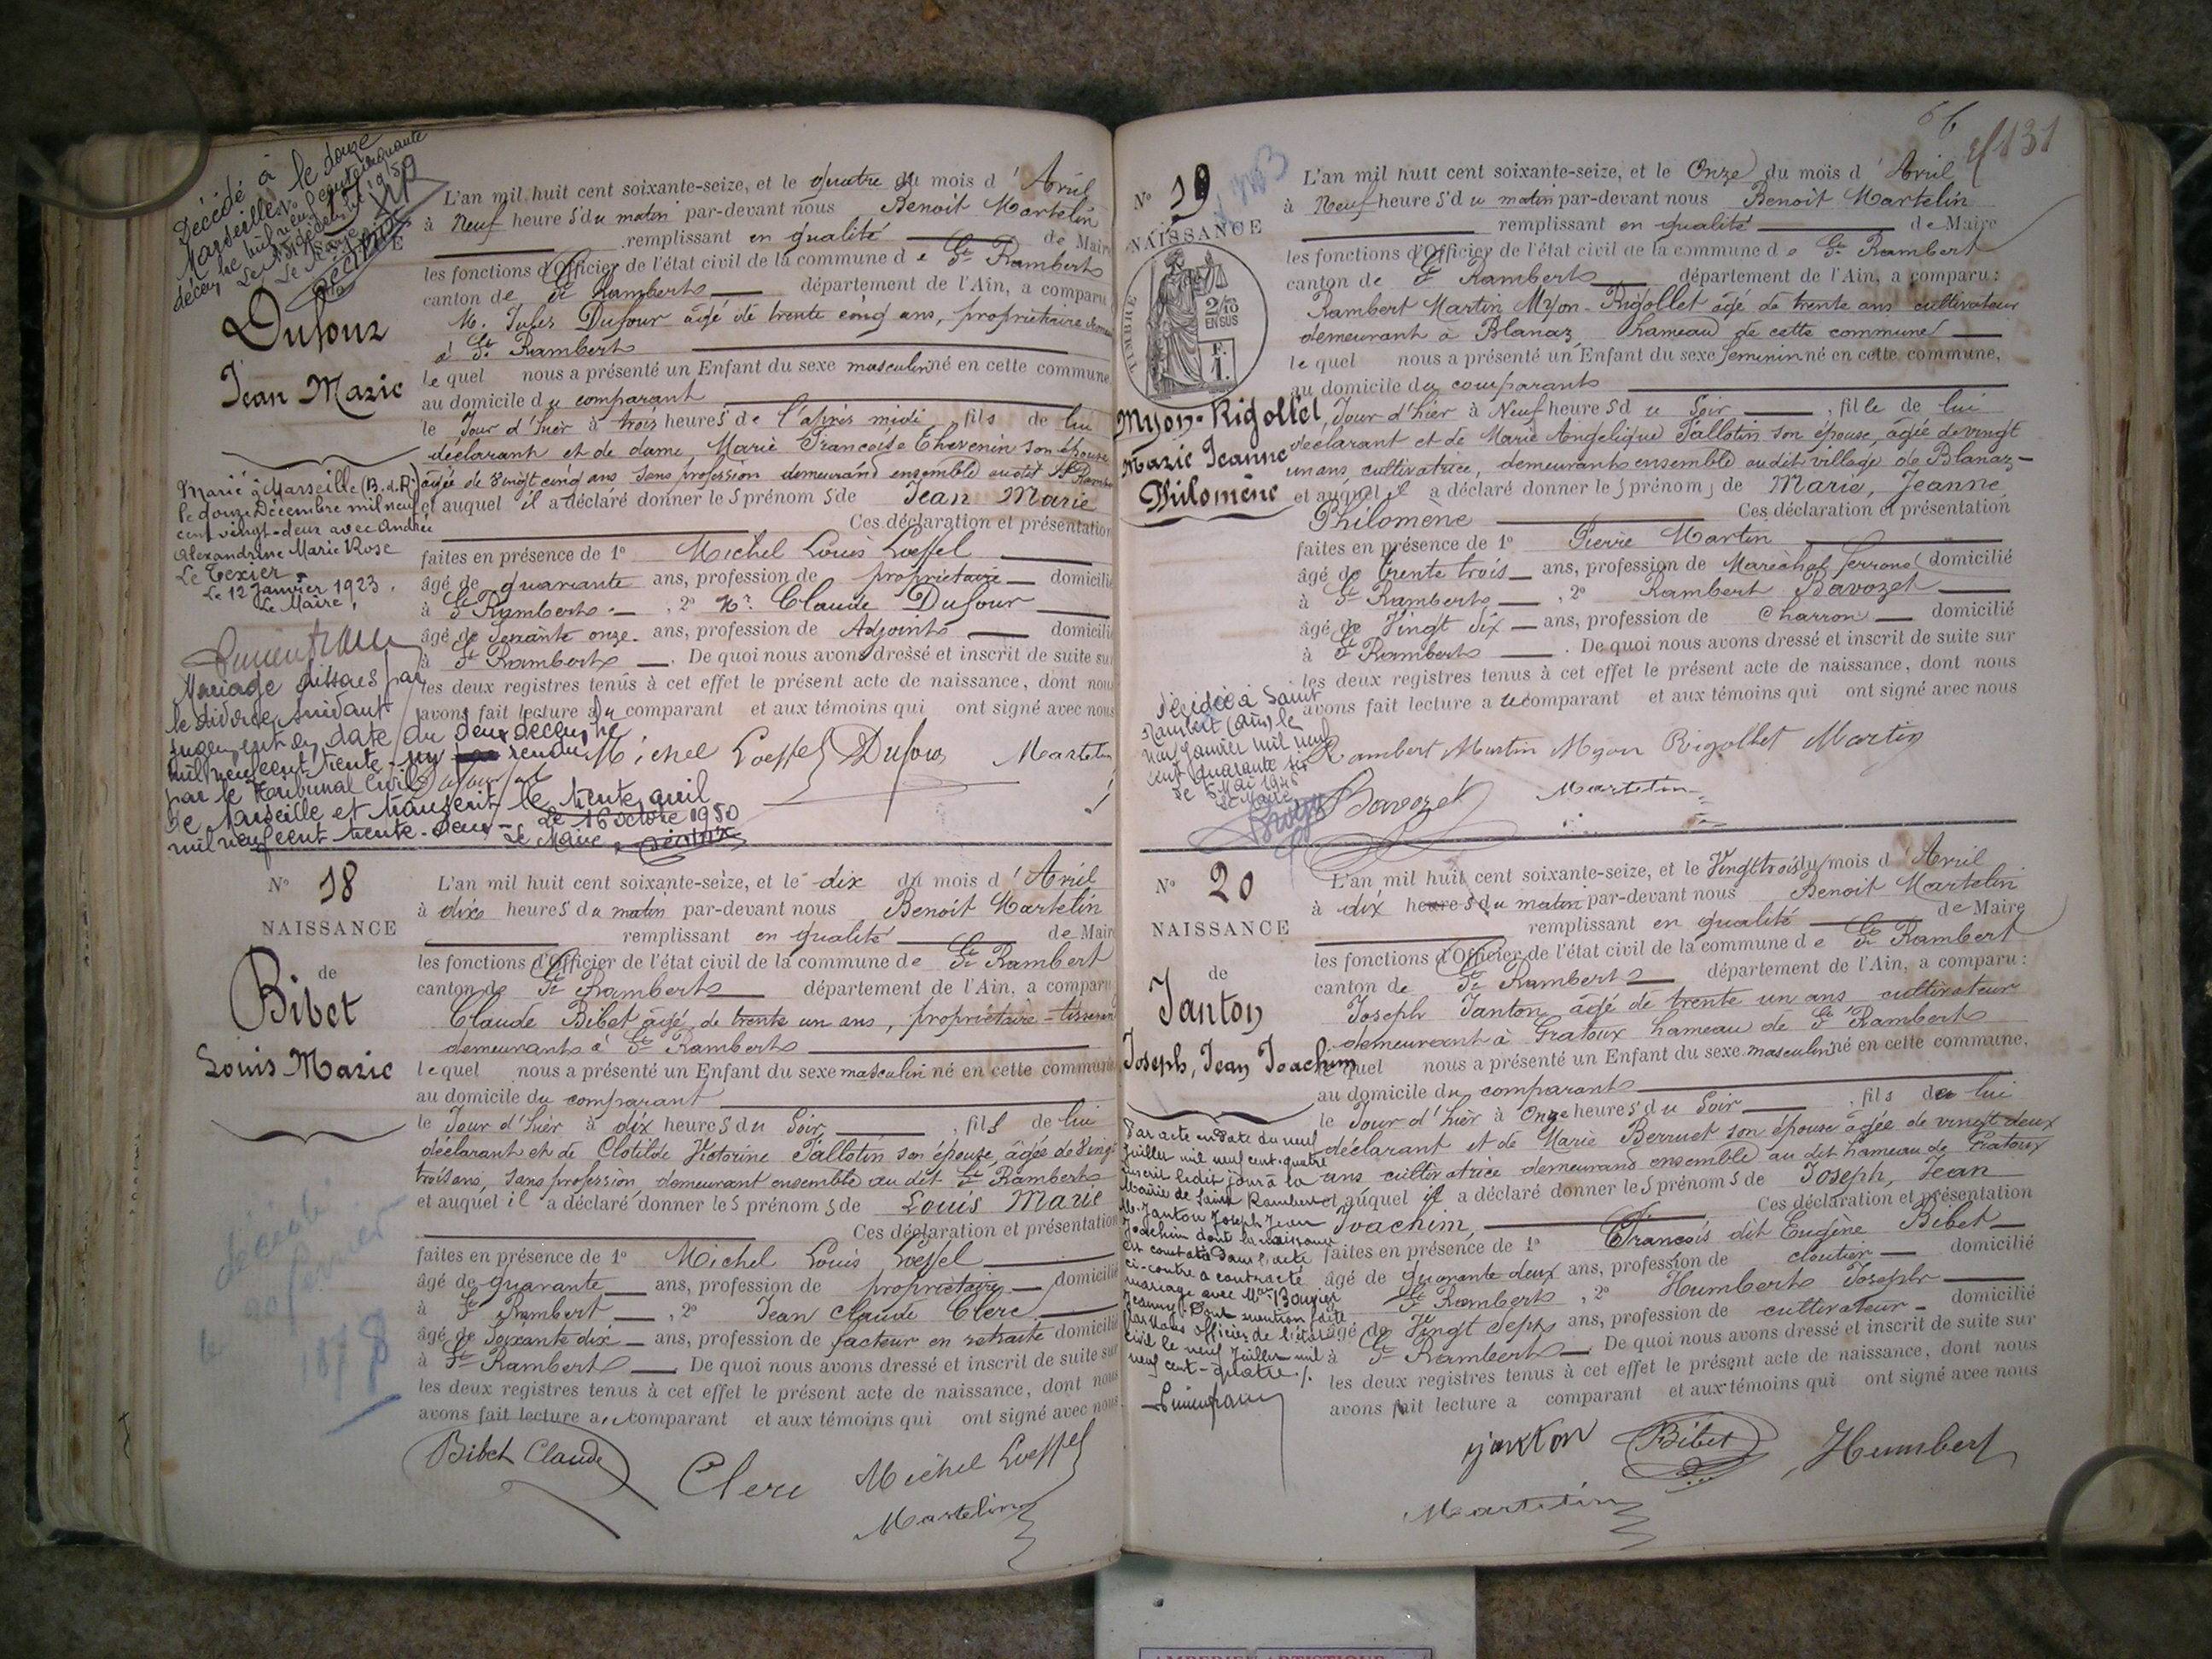 Décédé à
Marseille le douze
décembre mil neuf cent cinquante
Le Maire
NAISSANCE
Dufour
Jean Marie
L'an mil huit cent soixante-seize, et le quatre du mois d'Avril
à Neuf heures du matin par-devant nous Benoit Martelin
remplissant en qualité de Maire
les fonctions d'Officier de l'état civil de la commune de St Rambert
canton de St Rambert département de l'Ain, a comparu
M. Jules Dufour âgé de trente cinq ans, propriétaire
à St Rambert
lequel nous a présenté un Enfant du sexe masculin né en cette commune,
au domicile du comparant
le Jour d'hier à trois heures de l'après midi, fils de lui
déclarant et de dame Marie Françoise Thevenin son épouse
âgée de vingt cinq ans sans profession demeurant ensemble audit St Rambert
et auquel il a déclaré donner les prénoms de Jean Marie
Ces déclaration et présentation
faites en présence de 1° Michel Louis Loeffel
âgé de quarante ans, profession de propriétaire domicilié
à St Rambert, 2° Mr. Claude Dufour
âgé de Soixante onze ans, profession de Adjoint domicilié
à St Rambert. De quoi nous avons dressé et inscrit de suite sur
les deux registres tenus à cet effet le présent acte de naissance, dont nous
avons fait lecture au comparant et aux témoins qui ont signé avec nous
Michel Loeffel Dufour Martelin
Marié à Marseille (B.d.R.)
le douze Décembre mil neuf
cent vingt-deux avec Andrée
Alexandrine Marie Rose
Le Texier.
Le 12 Janvier 1923.
Le Maire,
Mariage dissous par
le divorce suivant
jugement en date du deux décembre
mil neuf cent trente-un rendu
par le Tribunal Civil
de Marseille et transcrit le trente avril
mil neuf cent trente-deux - Le 16 octobre 1950
Le Maire,
N° 18
NAISSANCE
de
Bibet
Louis Marie
L'an mil huit cent soixante-seize, et le dix du mois d'Avril
à dix heures du matin par-devant nous Benoit Martelin
remplissant en qualité de Maire
les fonctions d'Officier de l'état civil de la commune de St Rambert
canton de St Rambert département de l'Ain, a comparu
Claude Bibet âgé de trente un ans, propriétaire - tisserand
demeurant à St Rambert
lequel nous a présenté un Enfant du sexe masculin né en cette commune
au domicile du comparant
le Jour d'hier à dix heures du Soir, fils de lui
déclarant et de Clotilde Victorine Pallotin son épouse, âgée de vingt
trois ans, sans profession, demeurant ensemble au dit St Rambert
et auquel il a déclaré donner les prénoms de Louis Marie
Ces déclaration et présentation
faites en présence de 1° Michel Louis Loeffel
âgé de quarante ans, profession de propriétaire domicilié
à St Rambert, 2° Jean Claude Clerc
âgé de Soixante dix ans, profession de facteur en retraite domicilié
à St Rambert. De quoi nous avons dressé et inscrit de suite sur
les deux registres tenus à cet effet le présent acte de naissance, dont nous
avons fait lecture au comparant et aux témoins qui ont signé avec nous
Bibet Claude Clerc Michel Loeffel
Martelin
décédé
le 20 février
1878
66
131
N° 19
NAISSANCE
TIMBRE
2/10
EN SUS
F.
1.
Myon-Rigollet
Marie Jeanne
Philomène
L'an mil huit cent soixante-seize, et le Onze du mois d'Avril
à Neuf heures du matin par-devant nous Benoit Martelin
remplissant en qualité de Maire
les fonctions d'Officier de l'état civil de la commune de St Rambert
canton de St Rambert département de l'Ain, a comparu :
Rambert Martin Myon-Rigollet âgé de trente ans cultivateur
demeurant à Blanaz, hameau de cette commune
lequel nous a présenté un Enfant du sexe féminin né en cette commune,
au domicile du comparant
Jour d'hier à Neuf heures du Soir, fille de lui
déclarant et de Marie Angelique Pallotin son épouse, âgée de vingt
un ans, cultivatrice, demeurant ensemble audit village de Blanaz
et auquel il a déclaré donner les prénoms de Marie, Jeanne,
Philomène Ces déclaration et présentation
faites en présence de 1° Pierre Martin
âgé de trente trois ans, profession de Maréchal ferrant domicilié
à St Rambert, 2° Rambert Bavozet
âgé de Vingt six ans, profession de Charron domicilié
à St Rambert. De quoi nous avons dressé et inscrit de suite sur
les deux registres tenus à cet effet le présent acte de naissance, dont nous
avons fait lecture au comparant et aux témoins qui ont signé avec nous
Rambert Martin Myon Rigollet Martin
Bavozet Martelin
Décédée à Saint
Rambert (Ain) le
neuf Janvier mil neuf
cent quarante six
Le Maire
N° 20
NAISSANCE
de
Janton
Joseph, Jean Joachim
L'an mil huit cent soixante-seize, et le Vingt trois du mois d'Avril
à dix heures du matin par-devant nous Benoit Martelin
remplissant en qualité de Maire
les fonctions d'Officier de l'état civil de la commune de St Rambert
canton de St Rambert département de l'Ain, a comparu :
Joseph Janton âgé de trente un ans cultivateur
demeurant à Gratoux hameau de St Rambert
lequel nous a présenté un Enfant du sexe masculin né en cette commune,
au domicile du comparant
le Jour d'hier à Onze heures du Soir, fils de lui
déclarant et de Marie Berruet son épouse âgée de vingt deux
ans cultivatrice demeurant ensemble au dit hameau de Gratoux
et auquel il a déclaré donner les prénoms de Joseph, Jean
Joachim, Ces déclaration et présentation
faites en présence de 1° François dit Eugène Bibet
âgé de quarante deux ans, profession de cloutier domicilié
St Rambert, 2° Humbert Joseph
âgé de Vingt Sept ans, profession de cultivateur domicilié
à St Rambert. De quoi nous avons dressé et inscrit de suite sur
les deux registres tenus à cet effet le présent acte de naissance, dont nous
avons fait lecture a comparant et aux témoins qui ont signé avec nous
janton Bibet Humbert
Martelin
Par acte en date du neuf
Juillet mil neuf cent-quatre
inscrit ledit jour à la
Mairie de Saint Rambert
M. Janton Joseph Jean
Joachim dont la naissance
est constatée dans l'acte
ci-contre a contracté
mariage avec Mlle Bouvier
Jeanny. Dont mention faite
par nous officier de l'état
civil le neuf Juillet mil
neuf cent-quatre.